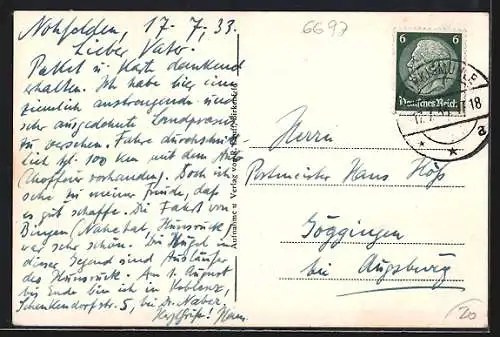 Nohfelden, 17. 7. 33.
Lieber Vater.
Paket u. Karte dankend
erhalten. Ich habe hier eine
ziemlich anstrengende und
sehr ausgedehnte Landpraxis
zu versehen. Fahre durchschnitt-
lich tgl. 100 km mit dem Auto
(Chauffeur vorhanden). Doch ich
sehe zu meiner Freude, daß
es gut schaffe. Die Fahrt von
Bingen (Nahetal, Hunsrück)
war sehr schön. Die Hügel in
dieser Gegend sind Ausläufer
des Hunsrück. Am 1. August
bis Ende bin ich in Koblenz,
Schenkendorfstr. 5, bei Dr. Naber.
Herzl. Grüße! Hans.
Aufnahme u. Verlag von
6693
6 6
Deutsches Reich
18
a
Herrn
Postmeister Hans Höß
Göggingen
bei Augsburg
20